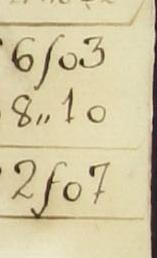 6ſ03
8„10
2ſ07